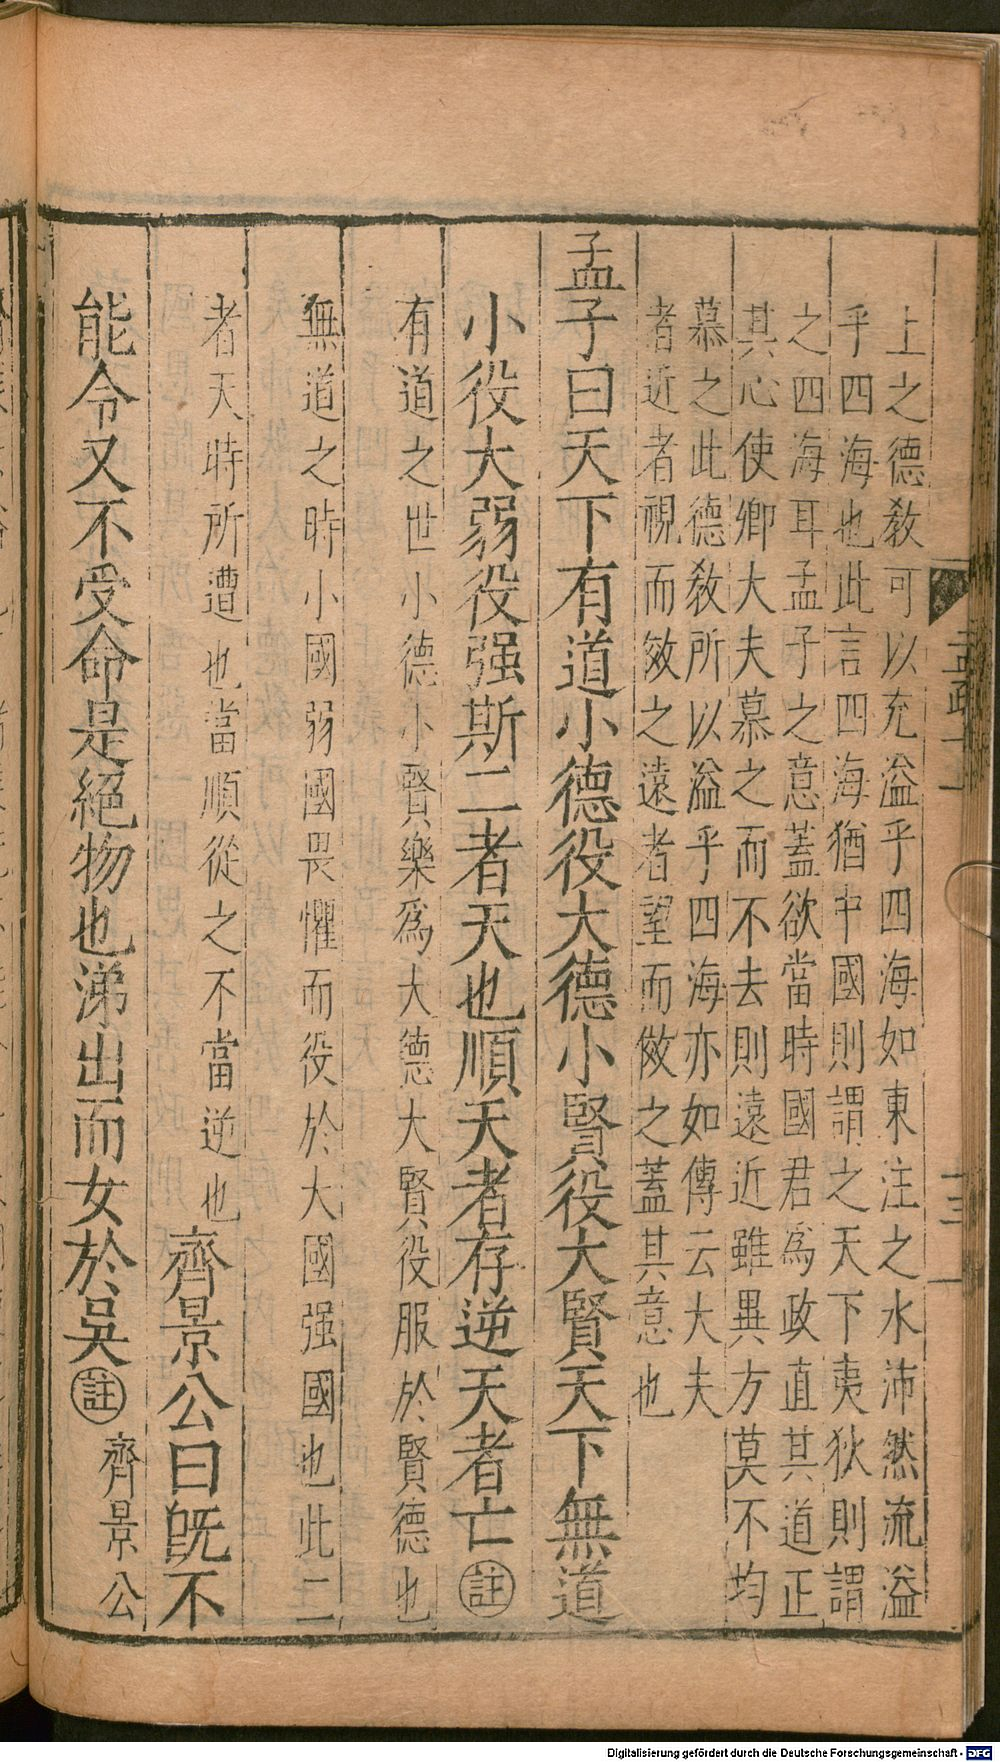 上之德敎可以充溢乎四海如東注之水沛然流溢
乎四海也此言四海猶中國則謂之天下夷狄則謂
之四海耳孟子之意蓋欲當時國君爲政直其道正
其心使鄉大夫慕之而不去則遠近雖異方莫不均
慕之此德敎所以溢乎四海亦如傳云大夫
者近者視而傚之遠者望而傚之蓋其意也
孟子曰天下有道小德役大德小賢役大賢天下無道
小役大弱役强斯二者天也順天者存逆天者亡註
有道之世小德小賢樂爲大德大賢役服於賢德也
無道之時小國弱國畏懼而役於大國强國也此二
者天時所遭也當順從之不當逆也齊景公曰旣不
能令又不受命是絕物也涕出而女於吳註齊景公
孟疏
Digitalisierung gefördert durch die Deutsche Forschungsgemeinschaft - DFG